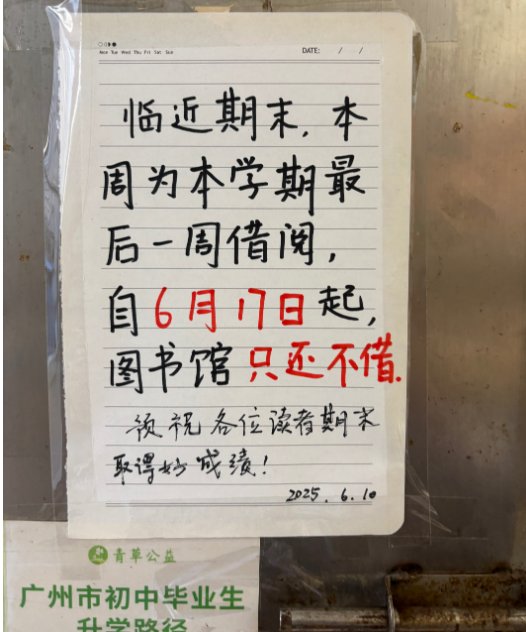 Mon Tue Wed Thu Fri Sat Sun
DATE: / /
临近期末,本
周为本学期最
后一周借阅,
自6月17日起,
图书馆只还不借.
预祝各位读者期末
取得好成绩!
2025.6.10
青草公益
广州市初中毕业生
升学路径